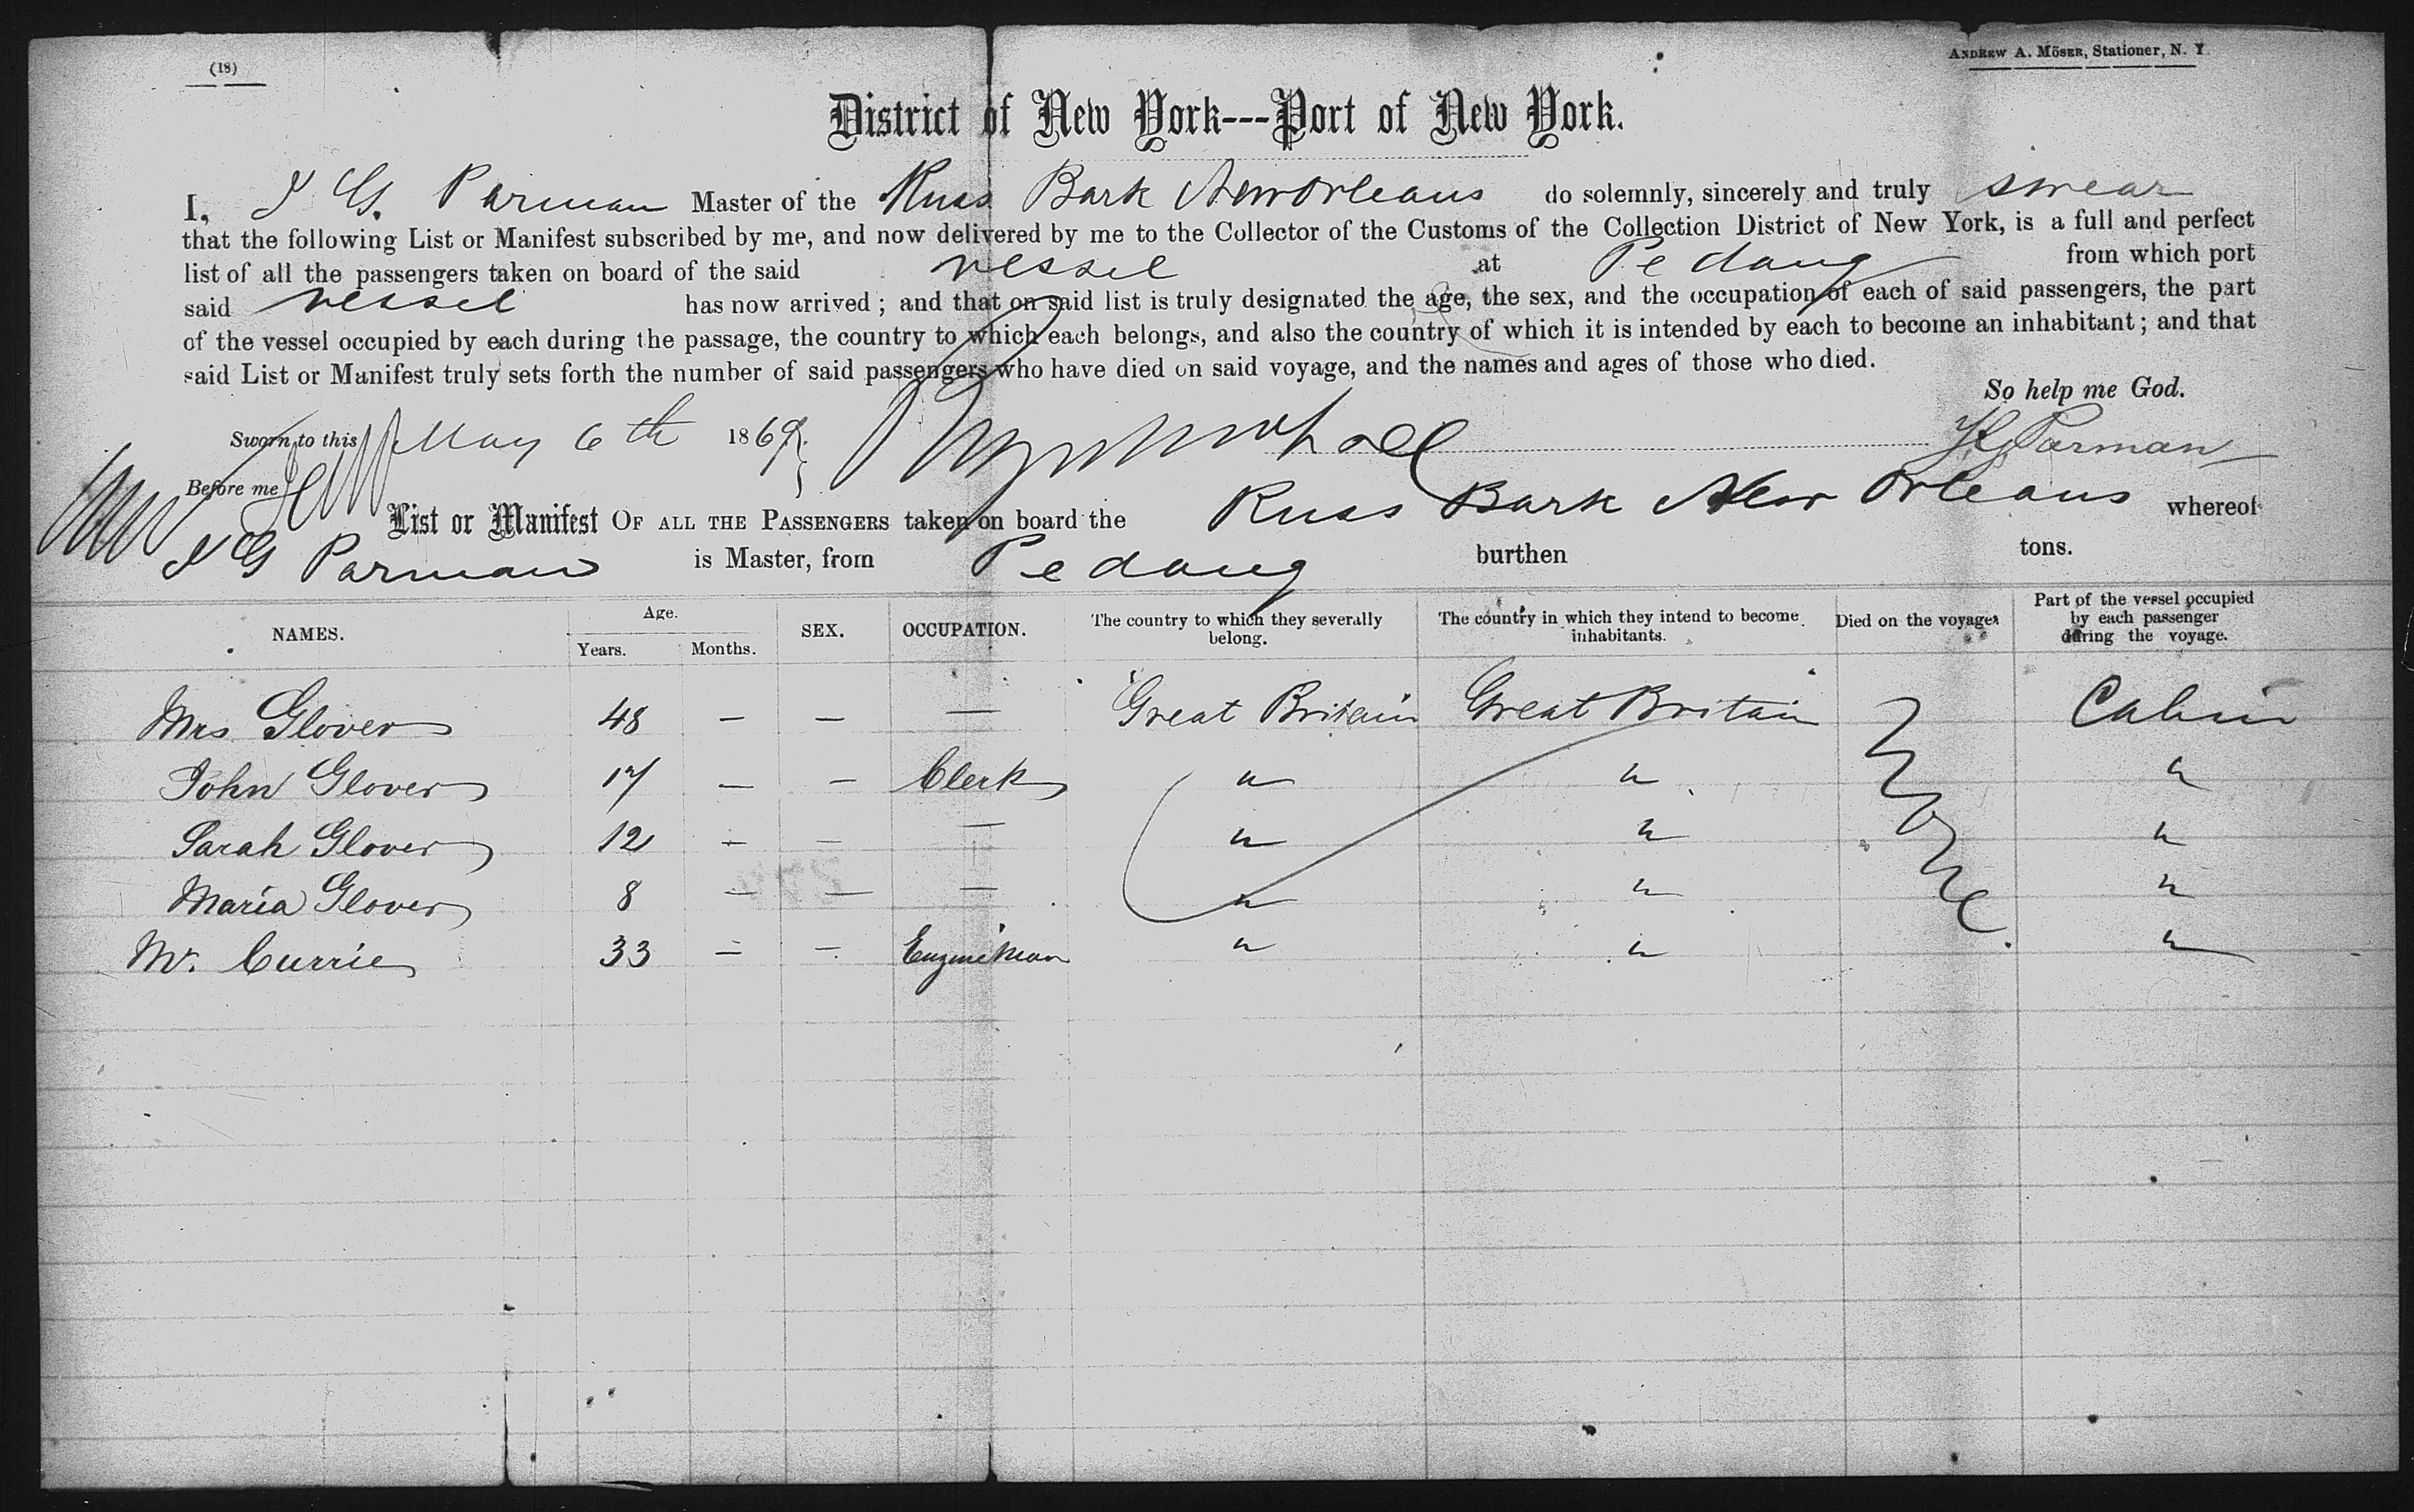 (18)
ANDREW A. MÖSER, Stationer, N. Y.
District of New York---Port of New York.
I, J G. Parman Master of the Russ Bark New Orleans do solemnly, sincerely and truly swear
that the following List or Manifest subscribed by me, and now delivered by me to the Collector of the Customs of the Collection District of New York, is a full and perfect
list of all the passengers taken on board of the said vessel at Pedang from which port
said vessel has now arrived; and that on said list is truly designated the age, the sex, and the occupation of each of said passengers, the part
of the vessel occupied by each during the passage, the country to which each belongs, and also the country of which it is intended by each to become an inhabitant; and that
said List or Manifest truly sets forth the number of said passengers who have died on said voyage, and the names and ages of those who died.
So help me God.
Sworn to this May 6th 1869 J G Parman
Before me
List or Manifest OF ALL THE PASSENGERS taken on board the Russ Bark New Orleans whereof
J G Parman is Master, from Pedang burthen tons.
NAMES. Age. Years. Months. SEX. OCCUPATION. The country to which they severally belong. The country in which they intend to become inhabitants. Died on the voyage. Part of the vessel occupied by each passenger during the voyage.
Mrs Glover 48 — — — Great Britain Great Britain None. Cabin
John Glover 17 — — Clerk " " "
Sarah Glover 12 — — — " " "
Maria Glover 8 — — — " " "
Mr. Currie 33 — — Engineman " " "